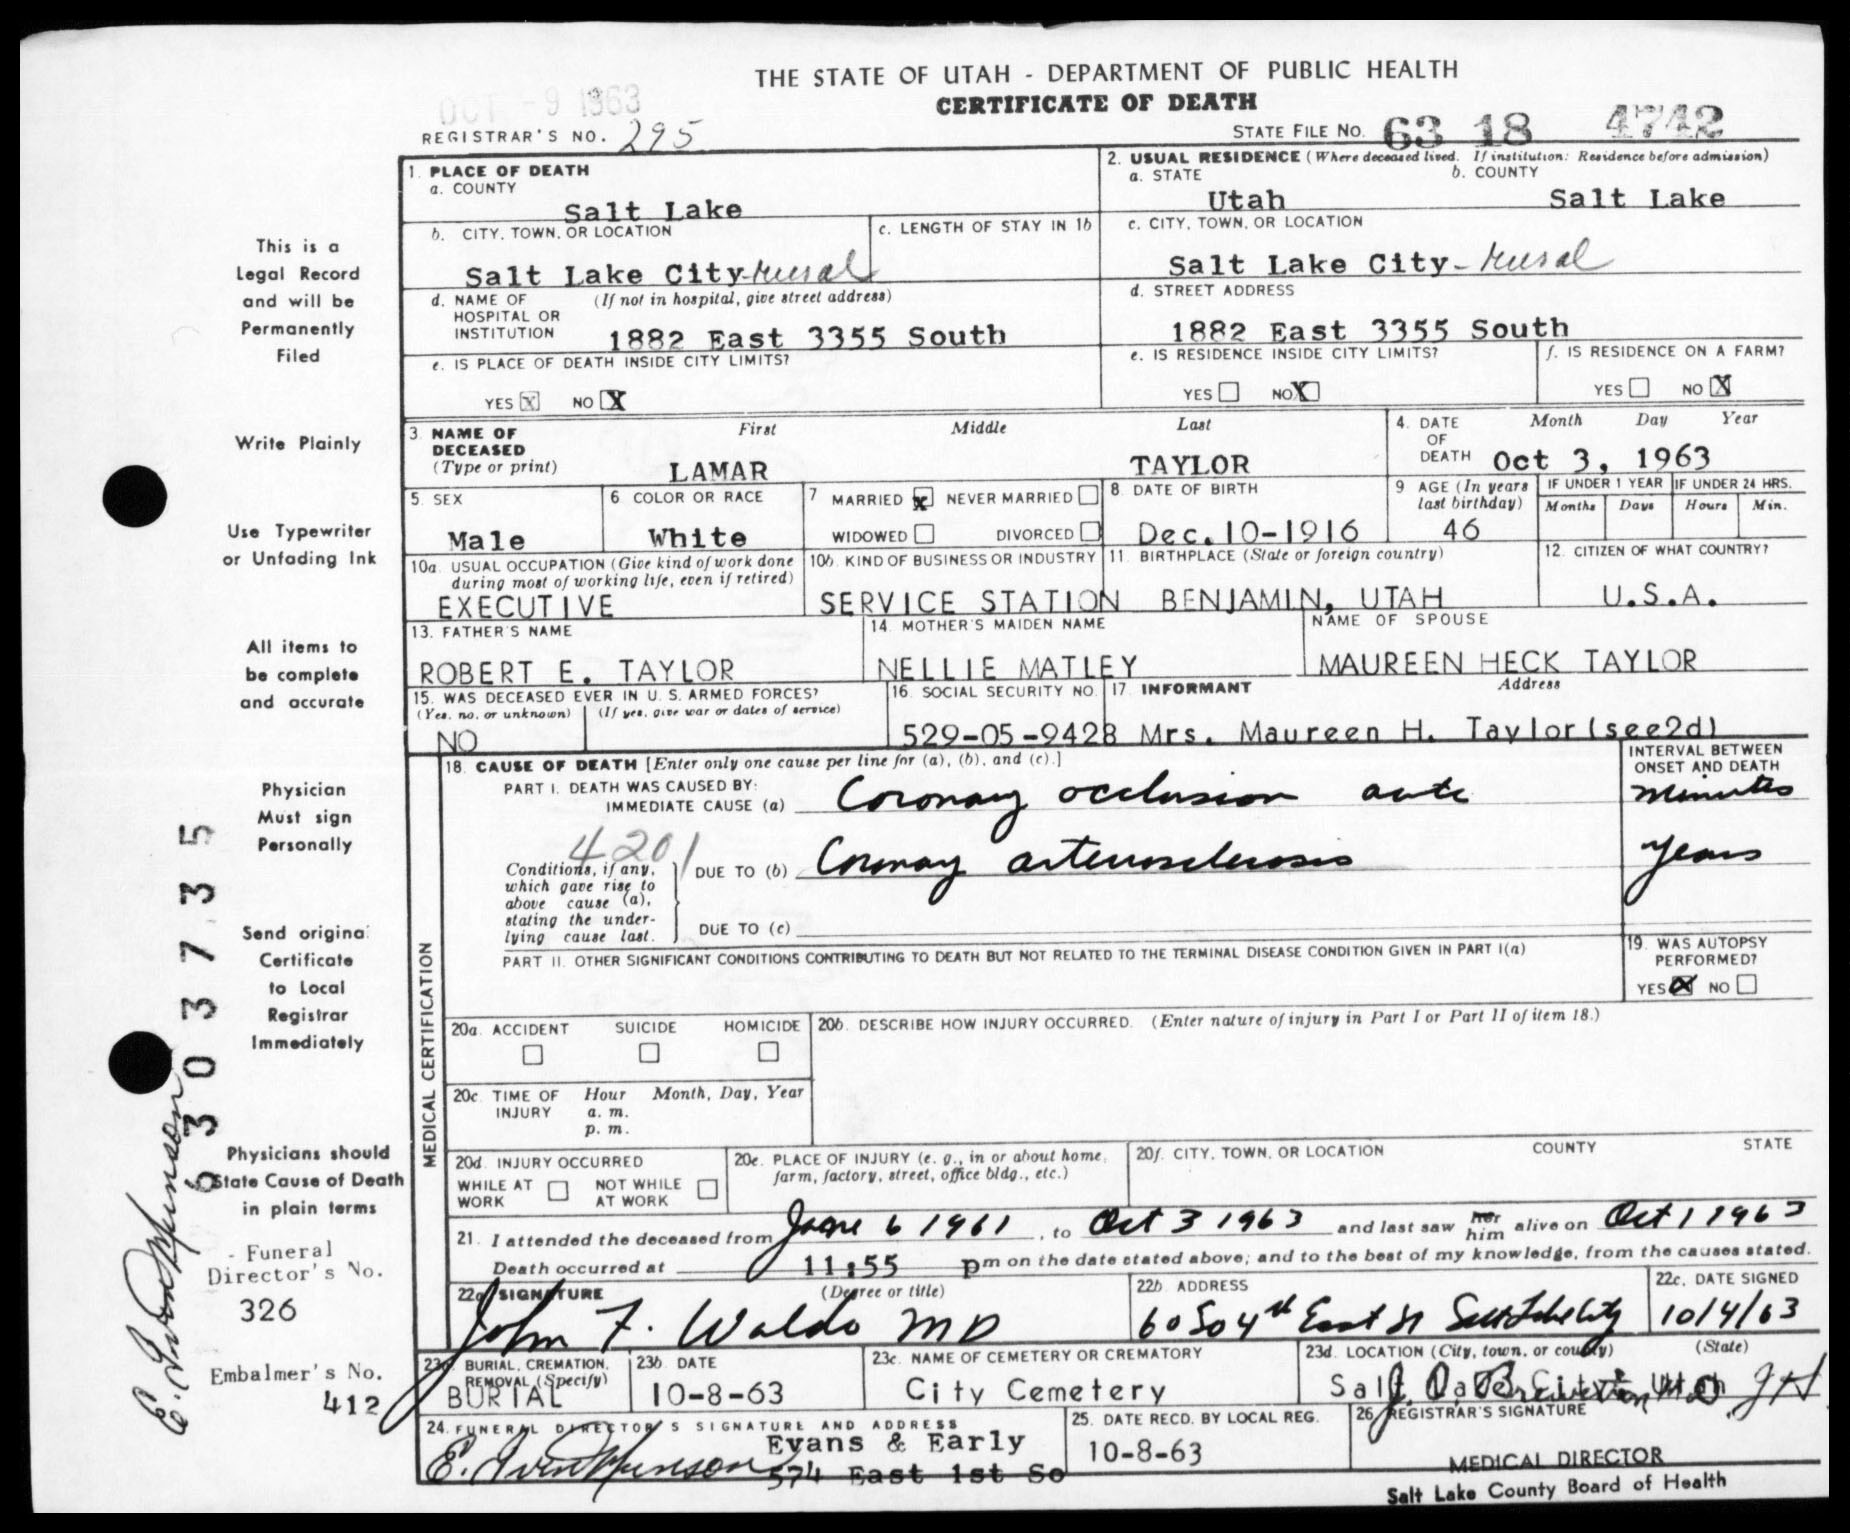 THE STATE OF UTAH - DEPARTMENT OF PUBLIC HEALTH
OCT -9 1963
CERTIFICATE OF DEATH
REGISTRAR'S NO. 295
STATE FILE NO. 63 18 4742
1. PLACE OF DEATH
a. COUNTY
Salt Lake
2. USUAL RESIDENCE (Where deceased lived. If institution: Residence before admission)
a. STATE
Utah
b. COUNTY
Salt Lake
b. CITY, TOWN, OR LOCATION
Salt Lake City-rural
c. LENGTH OF STAY IN 1b
c. CITY, TOWN, OR LOCATION
Salt Lake City-rural
d. NAME OF HOSPITAL OR INSTITUTION
(If not in hospital, give street address)
1882 East 3355 South
d. STREET ADDRESS
1882 East 3355 South
e. IS PLACE OF DEATH INSIDE CITY LIMITS?
YES X NO X
e. IS RESIDENCE INSIDE CITY LIMITS?
YES NO X
f. IS RESIDENCE ON A FARM?
YES NO X
3. NAME OF DECEASED
(Type or print)
First Middle Last
LAMAR TAYLOR
4. DATE OF DEATH
Month Day Year
Oct 3, 1963
5. SEX
Male
6 COLOR OR RACE
White
7 MARRIED X NEVER MARRIED
WIDOWED DIVORCED
8. DATE OF BIRTH
Dec.10-1916
9 AGE (In years last birthday)
46
IF UNDER 1 YEAR
Months Days
IF UNDER 24 HRS.
Hours Min.
10a. USUAL OCCUPATION (Give kind of work done during most of working life, even if retired)
EXECUTIVE
10b. KIND OF BUSINESS OR INDUSTRY
SERVICE STATION
11. BIRTHPLACE (State or foreign country)
BENJAMIN, UTAH
12. CITIZEN OF WHAT COUNTRY?
U.S.A.
13. FATHER'S NAME
ROBERT E. TAYLOR
14. MOTHER'S MAIDEN NAME
NELLIE MATLEY
NAME OF SPOUSE
MAUREEN HECK TAYLOR
15. WAS DECEASED EVER IN U. S. ARMED FORCES?
(Yes, no, or unknown) (If yes, give war or dates of service)
NO
16. SOCIAL SECURITY NO.
529-05-9428
17. INFORMANT Address
Mrs. Maureen H. Taylor(see2d)
MEDICAL CERTIFICATION
18. CAUSE OF DEATH [Enter only one cause per line for (a), (b), and (c).]
INTERVAL BETWEEN ONSET AND DEATH
PART I. DEATH WAS CAUSED BY:
IMMEDIATE CAUSE (a) Coronary occlusion acute
minutes
4201
Conditions, if any, which gave rise to above cause (a), stating the underlying cause last.
DUE TO (b) Coronary arteriosclerosis
years
DUE TO (c)
PART II. OTHER SIGNIFICANT CONDITIONS CONTRIBUTING TO DEATH BUT NOT RELATED TO THE TERMINAL DISEASE CONDITION GIVEN IN PART I(a)
19. WAS AUTOPSY PERFORMED?
YES X NO
20a. ACCIDENT SUICIDE HOMICIDE
20b. DESCRIBE HOW INJURY OCCURRED. (Enter nature of injury in Part I or Part II of item 18.)
20c. TIME OF INJURY
Hour Month, Day, Year
a. m.
p. m.
20d. INJURY OCCURRED
WHILE AT WORK NOT WHILE AT WORK
20e. PLACE OF INJURY (e. g., in or about home, farm, factory, street, office bldg., etc.)
20f. CITY, TOWN, OR LOCATION COUNTY STATE
21. I attended the deceased from June 6 1961, to Oct 3 1963 and last saw her him alive on Oct 1 1963
Death occurred at 11:55 pm on the date stated above; and to the best of my knowledge, from the causes stated.
22a SIGNATURE (Degree or title)
John F. Waldo MD
22b. ADDRESS
60 So 4th East St Salt Lake City
22c. DATE SIGNED
10/4/63
23a. BURIAL, CREMATION, REMOVAL (Specify)
BURIAL
23b. DATE
10-8-63
23c. NAME OF CEMETERY OR CREMATORY
City Cemetery
23d. LOCATION (City, town, or county) (State)
Salt Lake City Utah
24. FUNERAL DIRECTOR'S SIGNATURE AND ADDRESS
Evans & Early
574 East 1st So
25. DATE RECD. BY LOCAL REG.
10-8-63
26 REGISTRAR'S SIGNATURE
MEDICAL DIRECTOR
Salt Lake County Board of Health
This is a
Legal Record
and will be
Permanently
Filed
Write Plainly
Use Typewriter
or Unfading Ink
All items to
be complete
and accurate
Physician
Must sign
Personally
Send original
Certificate
to Local
Registrar
Immediately
Physicians should
State Cause of Death
in plain terms
- Funeral
Director's No.
326
Embalmer's No.
412
6303735